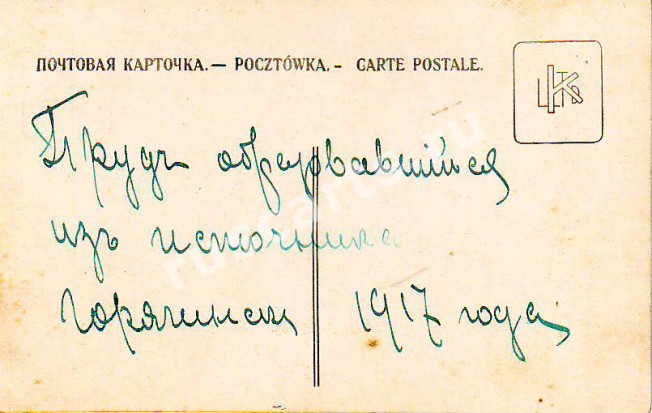 ПОЧТОВАЯ КАРТОЧКА.— POCZTÓWKA.- CARTE POSTALE.
Прудъ образовавшійся
изъ источника
Горячинск 1917 года